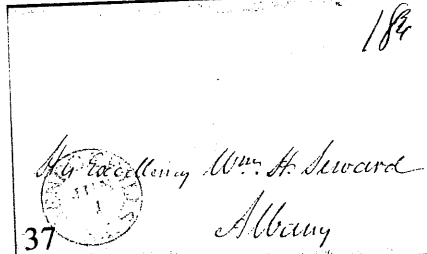 18¾
His Excellency Wm. H. Seward
Albany
1
37